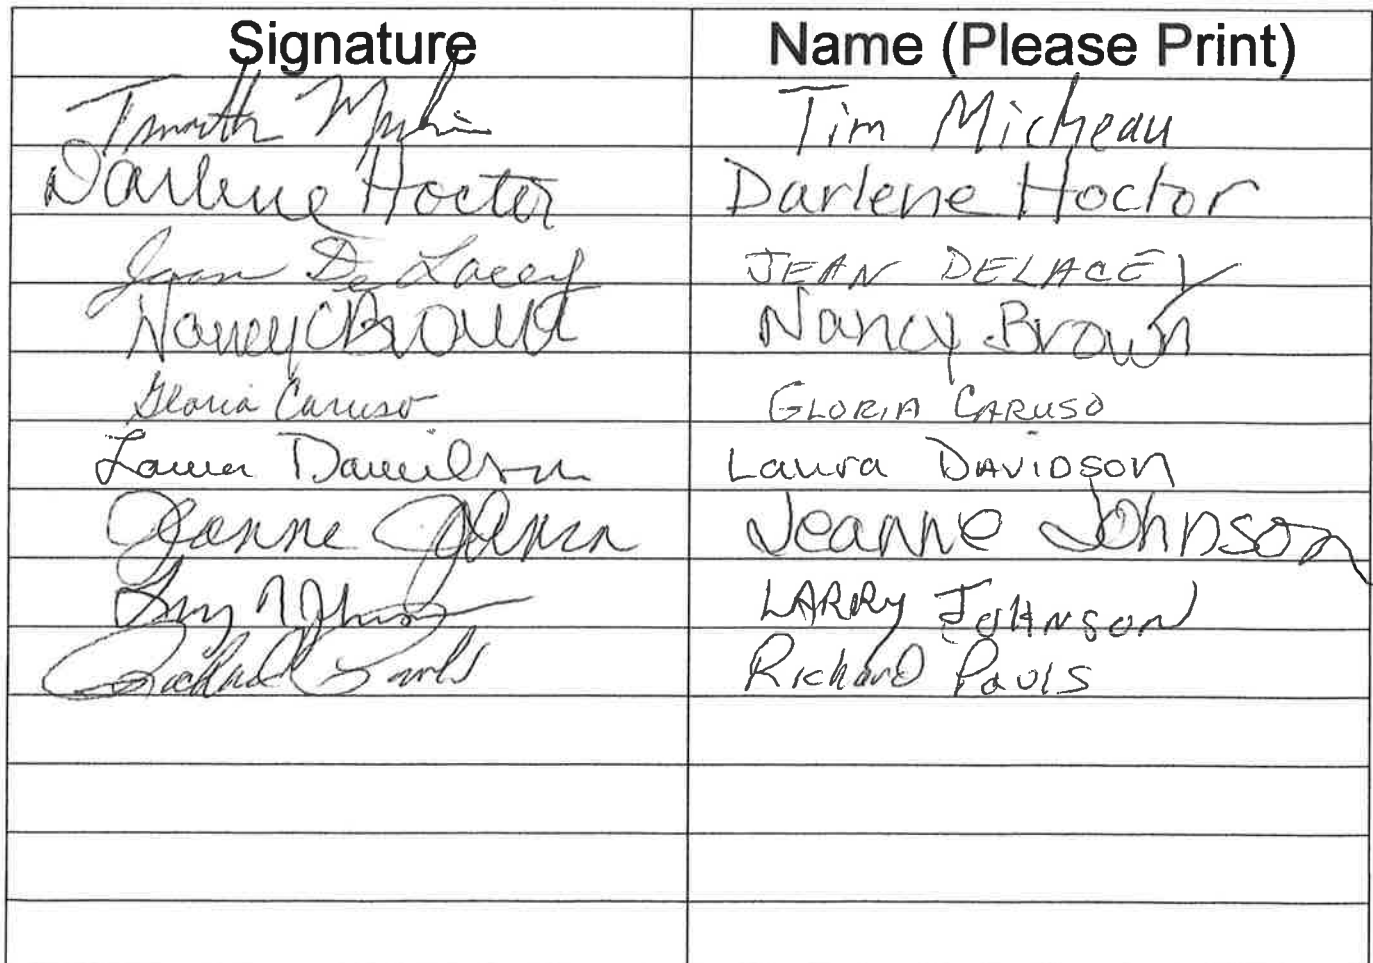 Signature Name (Please Print)
Tim Micheau
Darlene Hocter Darlene Hoctor
Jean De Lacey JEAN DELACEY
Nancy C Brown Nancy Brown
Gloria Caruso GLORIA CARUSO
Laura Davidson Laura DAVIDSON
Jeanne Johnson Jeanne Johnson
LARRY JOHNSON
Richard Pauls Richard Pauls